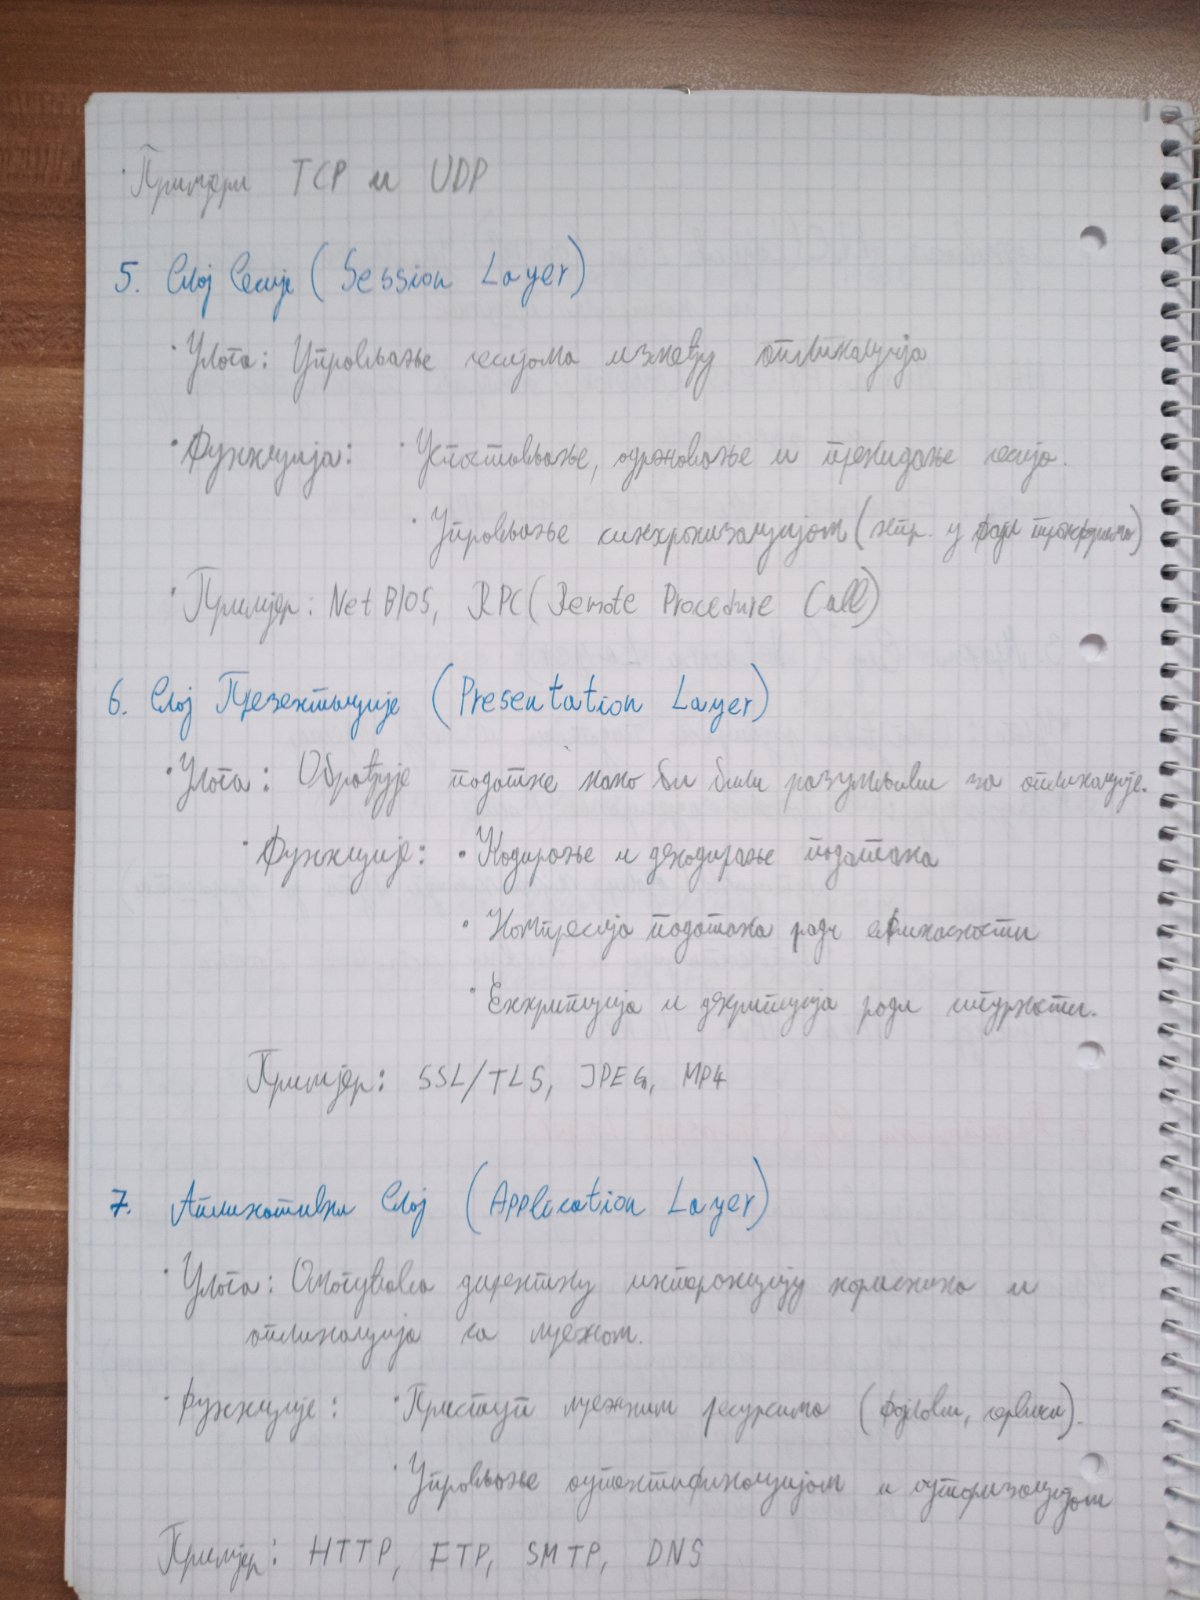 · Примјери TCP и UDP
5. Слој Сесије (Session Layer)
· Улога: Управљање сесијома између апликација
· Функција: · Успостављање, одржавање и прекидање сесија.
· Управљање синхронизацијом (нпр. у
· Примјер: NetBIOS, RPC (Remote Procedure Call)
6. Слој Презентације (Presentation Layer)
· Улога: Обрађује податке како би били разумљиви за апликације.
· Функције: · Кодирање и декодирање података
· Компресија података ради ефикасности
· Енкрипција и декрипција ради сигурности.
Примјер: SSL/TLS, JPEG, MP4
7. Апликативни Слој (Application Layer)
· Улога: Омогућава директну интеракцију корисника и
апликација са мрежом.
· Функције: · Приступ мрежним ресурсима (фајлови, сервиси).
· Управљање аутентификацијом и ауторизацијом
Примјер: HTTP, FTP, SMTP, DNS